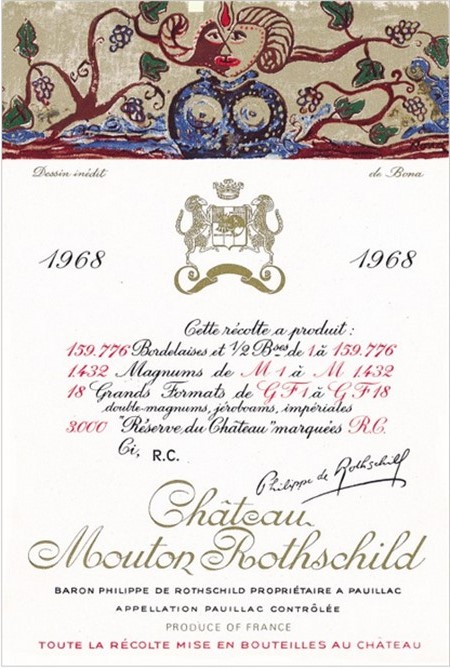 Dessin inédit de Bona
1968 1968
Cette récolte a produit :
159.776 Bordelaises et 1/2 Bses de 1 à 159.776
1.432 Magnums de M 1 à M 1.432
18 Grands Formats de G F 1 à G F 18
double-magnums, jéroboams, impériales
3000 "Réserve du Château" marquées R.C.
Ci, R.C.
Philippe de Rothschild
Château
Mouton Rothschild
BARON PHILIPPE DE ROTHSCHILD PROPRIÉTAIRE A PAUILLAC
APPELLATION PAUILLAC CONTRÔLÉE
PRODUCE OF FRANCE
TOUTE LA RÉCOLTE MISE EN BOUTEILLES AU CHÂTEAU